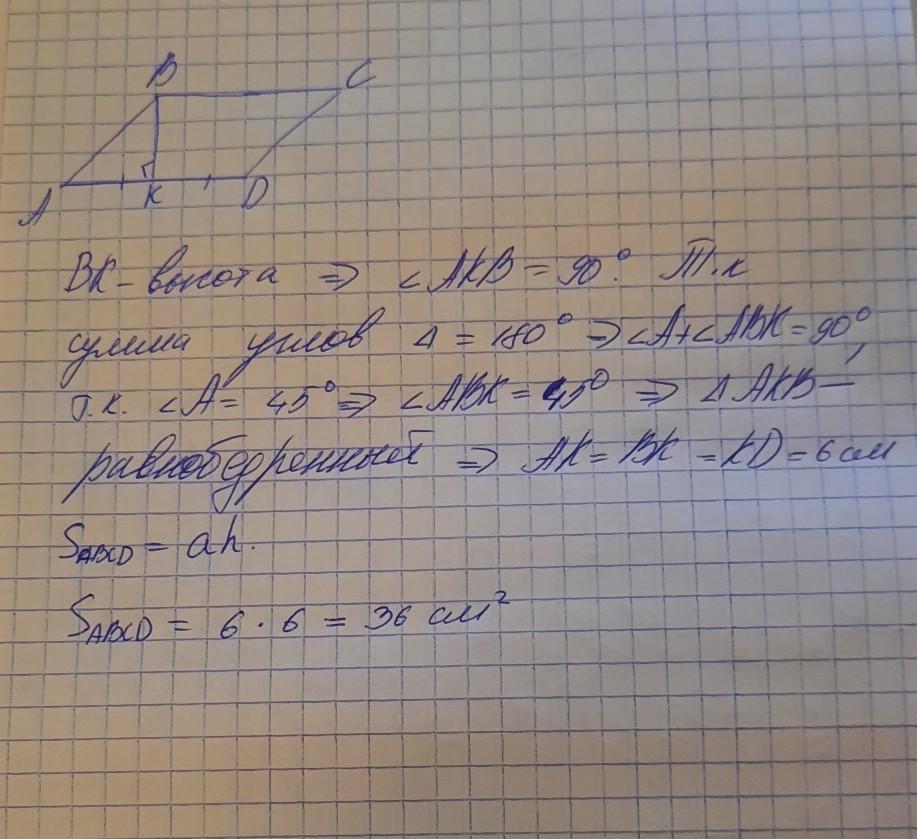 B C
A K D
BK - высота ⇒ ∠AKB = 90°. Т.к
сумма углов Δ = 180° ⇒ ∠A+∠ABK = 90°,
т.к. ∠A = 45° ⇒ ∠ABK = 45° ⇒ ΔAKB —
равнобедренный ⇒ AK = BK = KD = 6 см
S_ABCD = ah.
S_ABCD = 6 · 6 = 36 см²